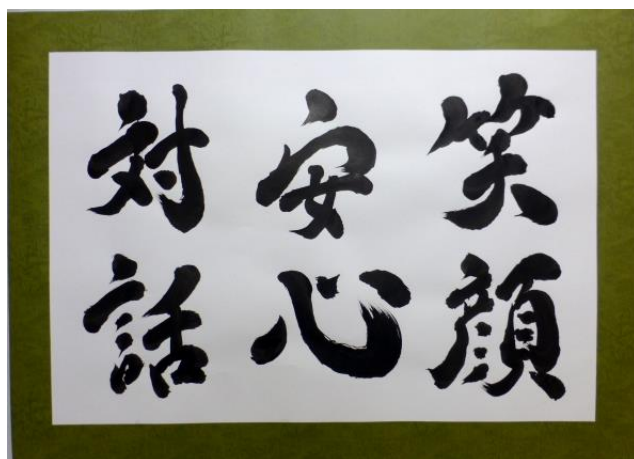 笑顔
安心
対話